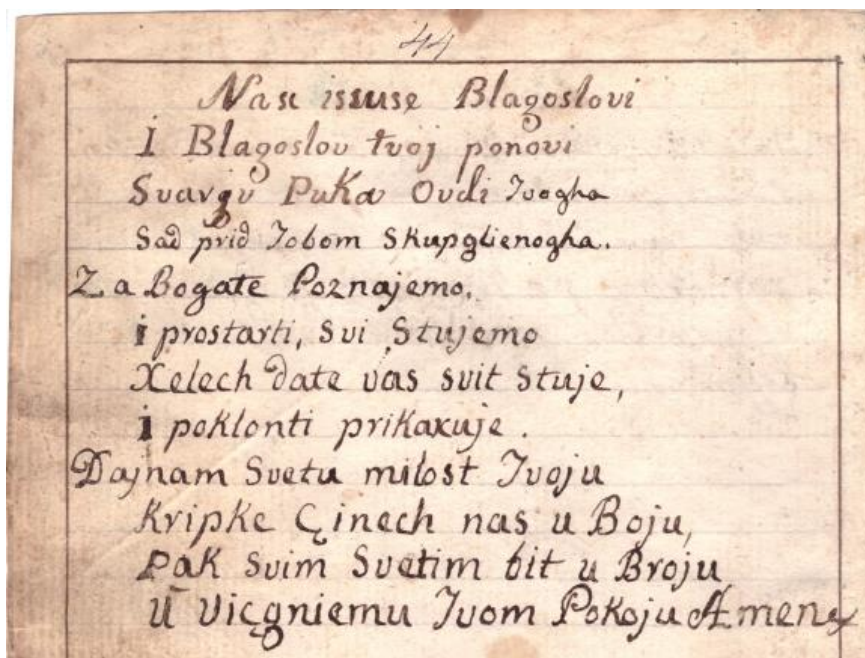 44
Nasc issuse Blagoslovi
I Blagoslov tvoj ponovi
Svargu Puka Ovdi Tvogha
Sad prid Tobom Skupglienogha.
Za Bogate Poznajemo,
i prostarti, Svi Stujemo
Xelech date vas svit stuje,
i poklonti prikaxuje.
Dajnam Svetu milost Tvoju
Kripke Çinech nas u Boju,
Pak Svim Svetim bit u Broju
U Viçgniemu Tvom Pokoju Amen